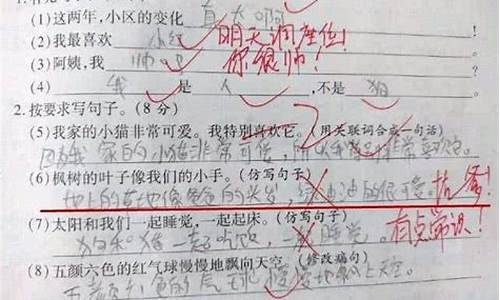 (1)这两年,小区的变化 真大啊
(2)我最喜欢 小红 明天调座位!
(3)阿姨,我 帅吗 你很帅!
(4) 我 是 人 ,不是 狗
2.按要求写句子。(8分)
(5)我家的小猫非常可爱。我特别喜欢它。(用关联词合成一句话)
因为我家的小猫非常可爱,所以我 非常喜欢它。
(6)枫树的叶子像我们的小手。(仿写句子)
地上的草地像爸爸的头发,绿油油的很可爱。抗爹!
(7)太阳和我们一起睡觉,一起起床。(仿写句子)
狗和猪一起吃饭,一起睡觉。有点常识!
(8)五颜六色的红气球慢慢地飘向天空。(修改病句)
五颜六色的气球慢慢地飘上天空。